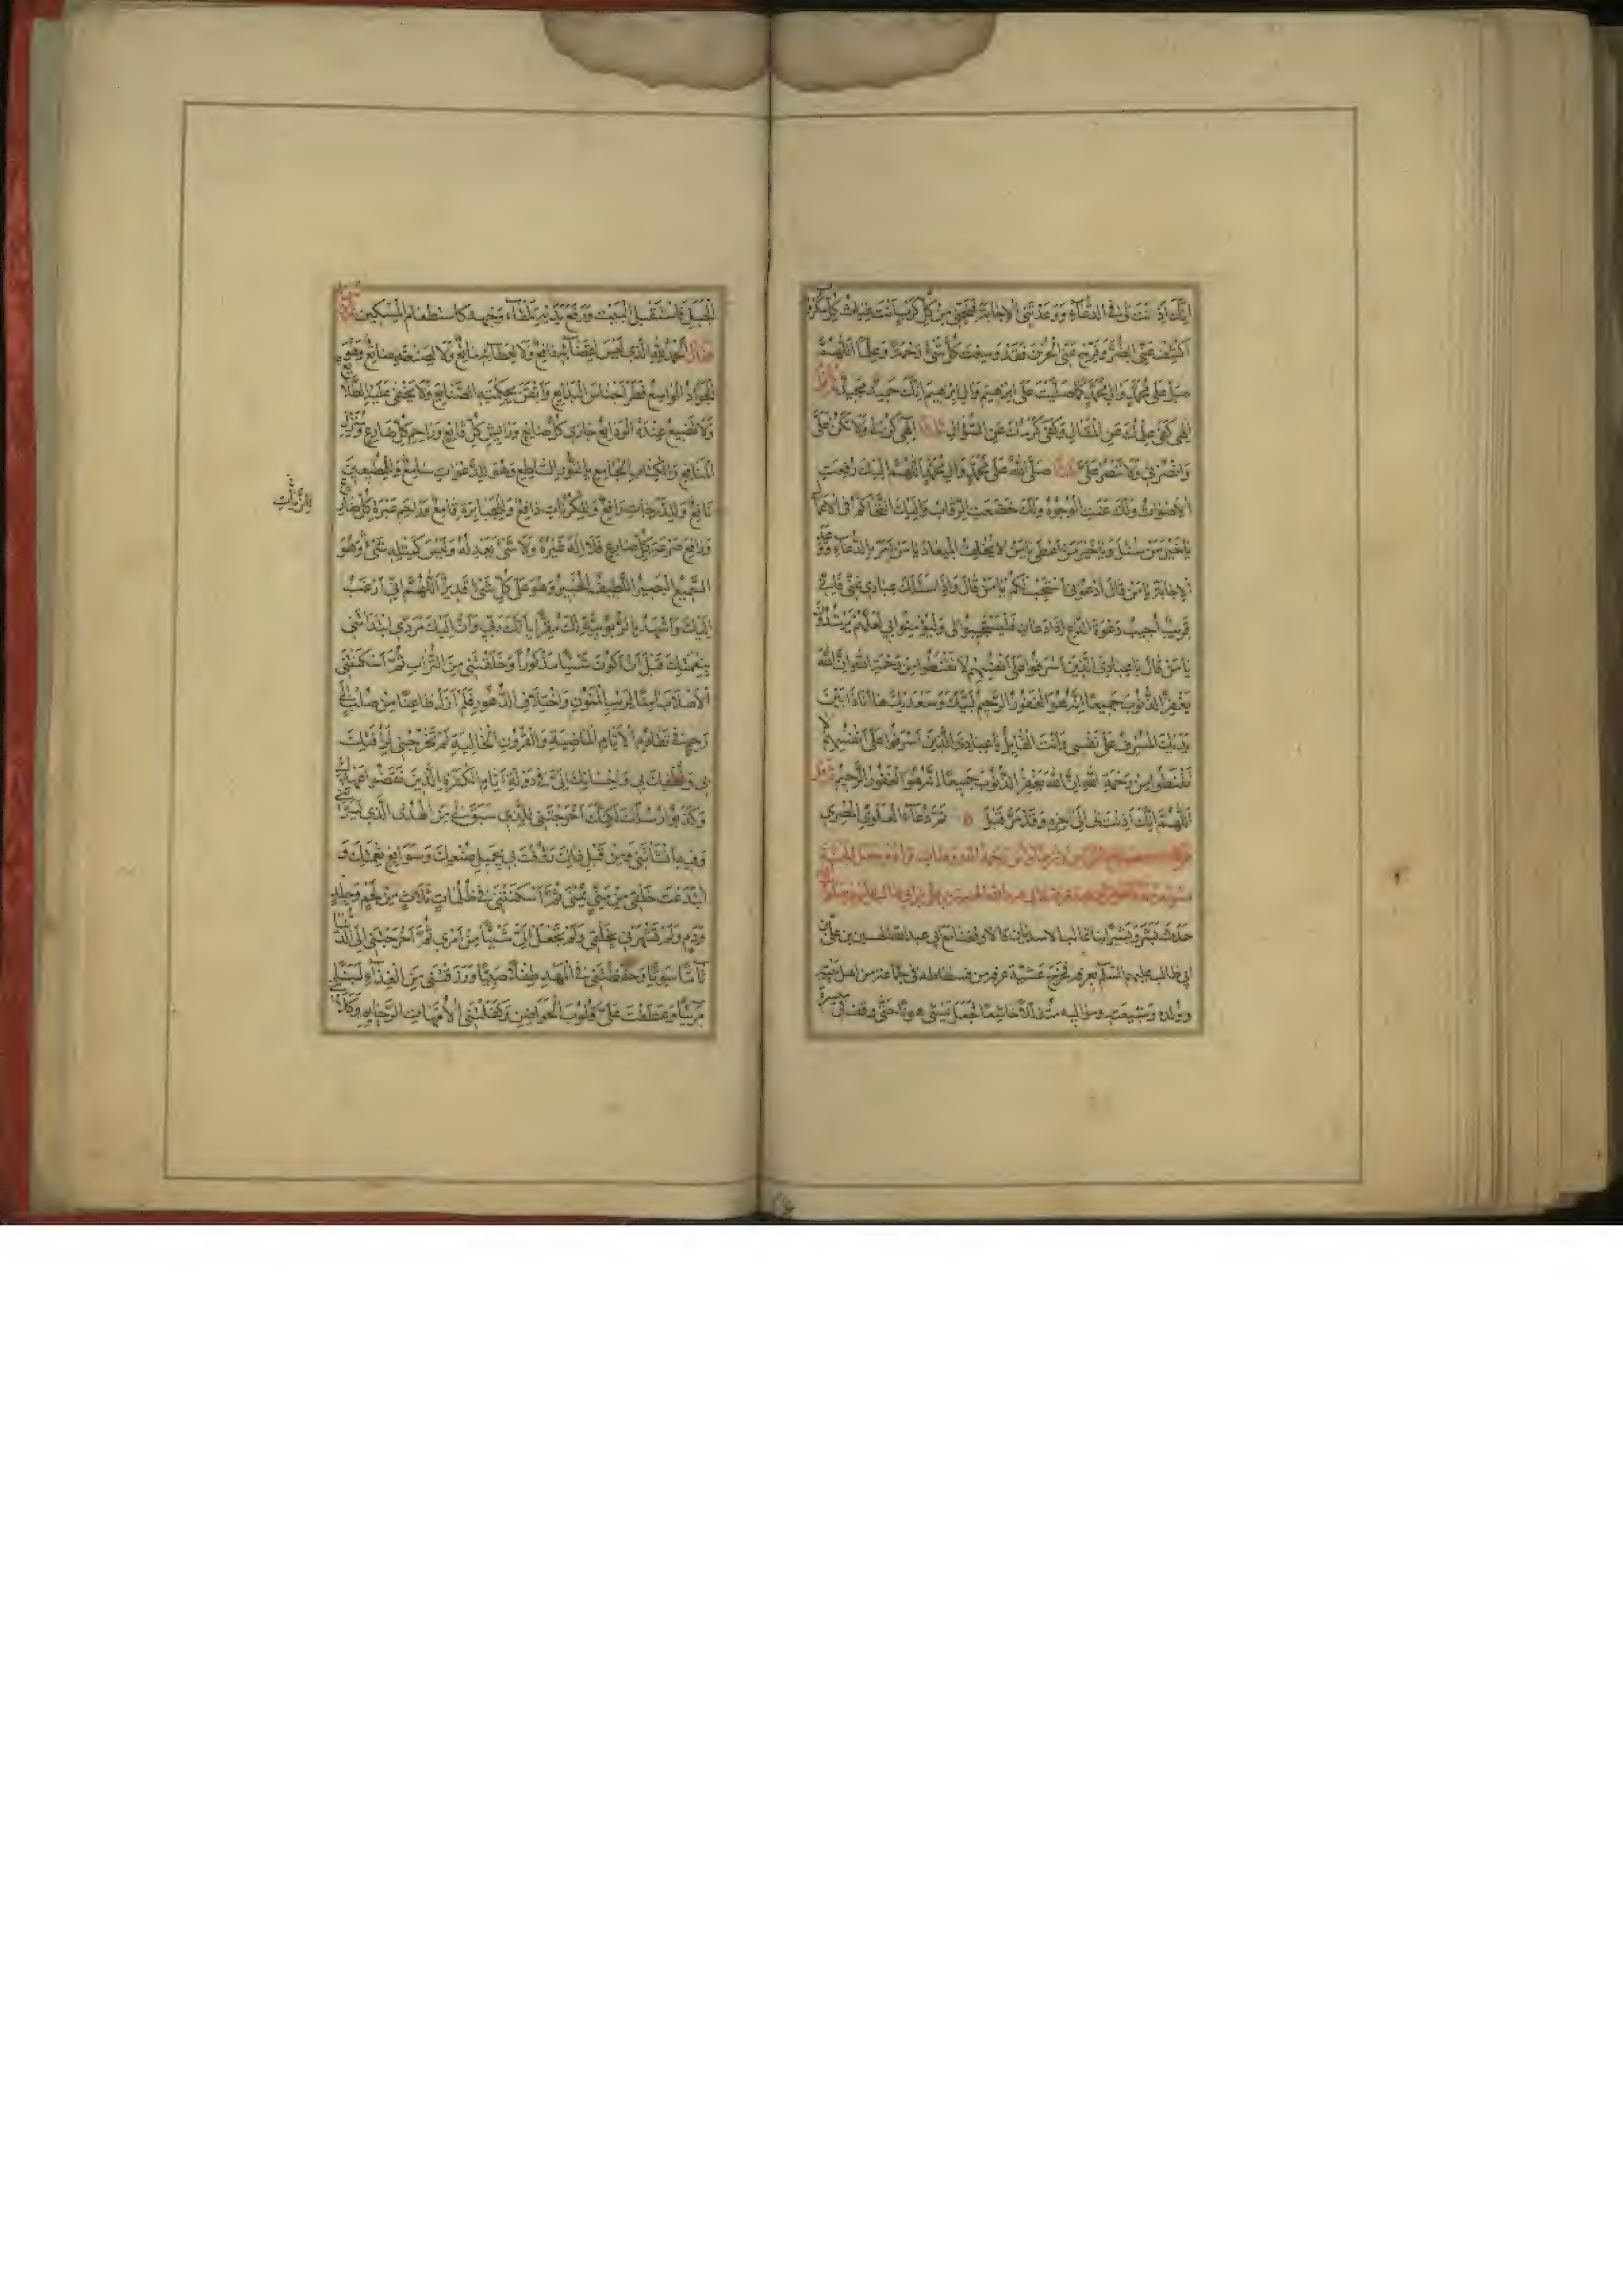 اِنَّكَ اَذِنْتَ لى فى الدُّعآءِ وَوَعَدْتَنِى الاِجابَةَ فَنَجِّنى مِنْ كُلِّ كَرْبٍ اَنْتَ غِياثُ كُلِّ مَكْرُوبٍ
اَكْشِفْ عَنِّى الضُّرَّ وَفَرِّجْ عَنِّى الْحُزْنَ فَقَدْ وَسِعْتَ كُلَّ شَىْءٍ رَحْمَةً وَعِلْماً اَللّهُمَّ
صَلِّ عَلى مُحَمَّدٍ وَالِ مُحَمَّدٍ كَما صَلَّيْتَ عَلى اِبْرهيمَ وَالِ اِبْرهيمَ اِنَّكَ حَميدٌ مَجيدٌ
اِلهى كَفى عِلْمُكَ عَنِ الْمَقالِ وَكَفى كَرَمُكَ عَنِ السُّؤالِ اِلهى كُنْ لى وَلا تَكُنْ عَلَىَّ
وَانْصُرْنى وَلا تَنْصُرْ عَلَىَّ صَلَّى اللهُ عَلى مُحَمَّدٍ وَالِ مُحَمَّدٍ اَللّهُمَّ اِلَيْكَ رُفِعَتِ
الاَصْواتُ وَلَكَ عَنَتِ الْوُجُوهُ وَلَكَ خَضَعَتِ الرِّقابُ وَاِلَيْكَ التَّحاكُمُ فى الاَعْمالِ
يا خَيْرَ مَنْ سُئِلَ وَيا خَيْرَ مَنْ اَعْطى يا مَنْ لا يُخْلِفُ الْميعادَ يا مَنْ اَمَرَ بِالدُّعآءِ وَوَعَدَ
الاِجابَةَ يا مَنْ قالَ ادْعُونى اَسْتَجِبْ لَكُمْ يا مَنْ قالَ وَاِذا سَئَلَكَ عِبادى عَنّى فَاِنّى
قَريبٌ اُجيبُ دَعْوَةَ الدّاعِ اِذا دَعانِ فَلْيَسْتَجيبُوا لى وَلْيُؤْمِنُوا بى لَعَلَّهُمْ يَرْشُدُونَ
يا مَنْ قالَ يا عِبادِىَ الَّذينَ اَسْرَفُوا عَلى اَنْفُسِهِمْ لا تَقْنَطُوا مِنْ رَحْمَةِ اللهِ اِنَّ اللهَ
يَغْفِرُ الذُّنُوبَ جَميعاً اِنَّهُ هُوَ الْغَفُورُ الرَّحيمُ لَبَّيْكَ وَسَعْدَيْكَ ها اَنَا ذا بَيْنَ
يَدَيْكَ الْمُسْرِفُ عَلى نَفْسى وَاَنْتَ الْقآئِلُ يا عِبادِىَ الَّذينَ اَسْرَفُوا عَلى اَنْفُسِهِمْ لا
تَقْنَطُوا مِنْ رَحْمَةِ اللهِ اِنَّ اللهَ يَغْفِرُ الذُّنُوبَ جَميعاً اِنَّهُ هُوَ الْغَفُورُ الرَّحيمُ
اَللّهُمَّ اِنَّكَ اَذِنْتَ لى اِلى اخِرِهِ وَقَدْ مَرَّ قَبْلُ تَمَّ دُعآءُ الْعَلَوِىِّ الْمِصْرِى
حَدَّثَ بِشْرٌ وَبَشيرٌ ابنا غالب الاسديان قالا وقفنا مع ابى عبدالله الحسين بن على بن
ابى طالب عليهم السّلام بعرفة فخرج عشيّة عرفة من فسطاطه فى جماعة من اهل بيته
وولده وشيعته متذلّلاً خاشعًا فجعل يمشى هونًا حتّى وقف فى
الْجَبَلِ فَاسْتَقْبَلَ الْبَيْتَ وَرَفَعَ يَدَيْهِ تِلْقآءَ وَجْهِهِ كَاسْتِطْعامِ الْمِسْكينِ
اَلْحَمْدُ لِلّهِ الَّذى لَيْسَ لِقَضآئِهِ دافِعٌ وَلا لِعَطآئِهِ مانِعٌ وَلا لِصُنْعِهِ صانِعٌ وَهُوَ
الْجَوادُ الْواسِعُ فَطَرَ اَجْناسَ الْبَدايِعِ وَاَتْقَنَ بِحِكْمَتِهِ الصَّنايِعَ وَلا يَخْفى عَلَيْهِ الطَّلايِعُ
وَلا تَضيعُ عِنْدَهُ الْوَدايِعُ جازى كُلِّ صانِعٍ وَرايِشُ كُلِّ قانِعٍ وَراحِمُ كُلِّ ضارِعٍ وَمُنْزِلُ
الْمَنافِعِ وَالْكِتابِ الْجامِعِ بِالنُّورِ السّاطِعِ وَهُوَ لِلدَّعَواتِ سامِعٌ وَلِلْمُطيعينَ
نافِعٌ وَلِلدَّرَجاتِ رافِعٌ وَلِلْكُرُباتِ دافِعٌ وَلِلْجَبابِرَةِ قامِعٌ وَراحِمُ عَبْرَةِ كُلِّ ضارِعٍ
وَدافِعُ ضَرْعَةِ كُلِّ ضارِعٍ فَلا اِلهَ غَيْرُهُ وَلا شَىْءَ يَعْدِلُهُ وَلَيْسَ كَمِثْلِهِ شَىْءٌ وَهُوَ
السَّميعُ الْبَصيرُ اللَّطيفُ الْخَبيرُ وَهُوَ عَلى كُلِّ شَىْءٍ قَديرٌ اَللّهُمَّ اِنّى اَرْغَبُ
اِلَيْكَ وَاَشْهَدُ بِالرُّبُوبِيَّةِ لَكَ مُقِرّاً بِاَنَّكَ رَبّى وَاَنَّ اِلَيْكَ مَرَدّى ابْتَدَاْتَنى
بِنِعْمَتِكَ قَبْلَ اَنْ اَكُونَ شَيْئاً مَذْكُوراً وَخَلَقْتَنى مِنَ التُّرابِ ثُمَّ اَسْكَنْتَنِى
الاَصْلابَ امِناً لِرَيْبِ الْمَنُونِ وَاخْتِلافِ الدُّهُورِ فَلَمْ اَزَلْ ظاعِناً مِنْ صُلْبٍ اِلى
رَحِمٍ فى تَقادُمِ الاَيّامِ الْماضِيَةِ وَالْقُرُونِ الْخالِيَةِ لَمْ تُخْرِجْنى لِرَأْفَتِكَ
بى وَلُطْفِكَ بى وَاِحْسانِكَ اِلَىَّ فى دَوْلَةِ اَيّامِ الْكَفَرَةِ الَّذينَ نَقَضُوا عَهْدَكَ
وَكَذَّبُوا رُسُلَكَ لكِنَّكَ اَخْرَجْتَنى لِلَّذى سَبَقَ لى مِنَ الْهُدَى الَّذى يَسَّرْتَنى
وَفيهِ اَنْشَأْتَنى وَمِنْ قَبْلِ ذلِكَ رَؤُفْتَ بى بِجَميلِ صُنْعِكَ وَسَوابِغِ نِعْمَتِكَ وَ
ابْتَدَعْتَ خَلْقى مِنْ مَنِىٍّ يُمْنى ثُمَّ اَسْكَنْتَنى فى ظُلُماتٍ ثَلاثٍ مِنْ لَحْمٍ وَجِلْدٍ
وَدَمٍ وَلَمْ تُشَهِّرْنى بِخَلْقى وَلَمْ تَجْعَلْ اِلَىَّ شَيْئاً مِنْ اَمْرى ثُمَّ اَخْرَجْتَنى اِلَى الدُّنْيا
تآمّاً سَوِيّاً وَحَفِظْتَنى فِى الْمَهْدِ طِفْلاً صَبِيّاً وَرَزَقْتَنى مِنَ الْغِذآءِ لَبَناً
مَرِيّاً وَعَطَفْتَ عَلَىَّ قُلُوبَ الْحَواضِنِ وَكَفَّلْتَنِى الاُمَّهاتِ الرَّحآئِمَ